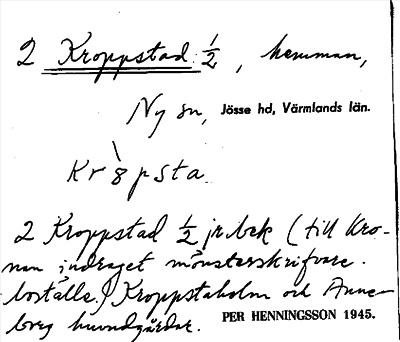 2 Kroppstad 1/2, hemman,
Ny sn, Jösse hd, Värmlands län.
Kr8̀psta.
2 Kroppstad 1/2 jr.bek (till Kro-
nan indraget mönsterskrifvare-
boställe.) Kroppstaholm och Anne-
berg huvudgårdar.
PER HENNINGSSON 1945.